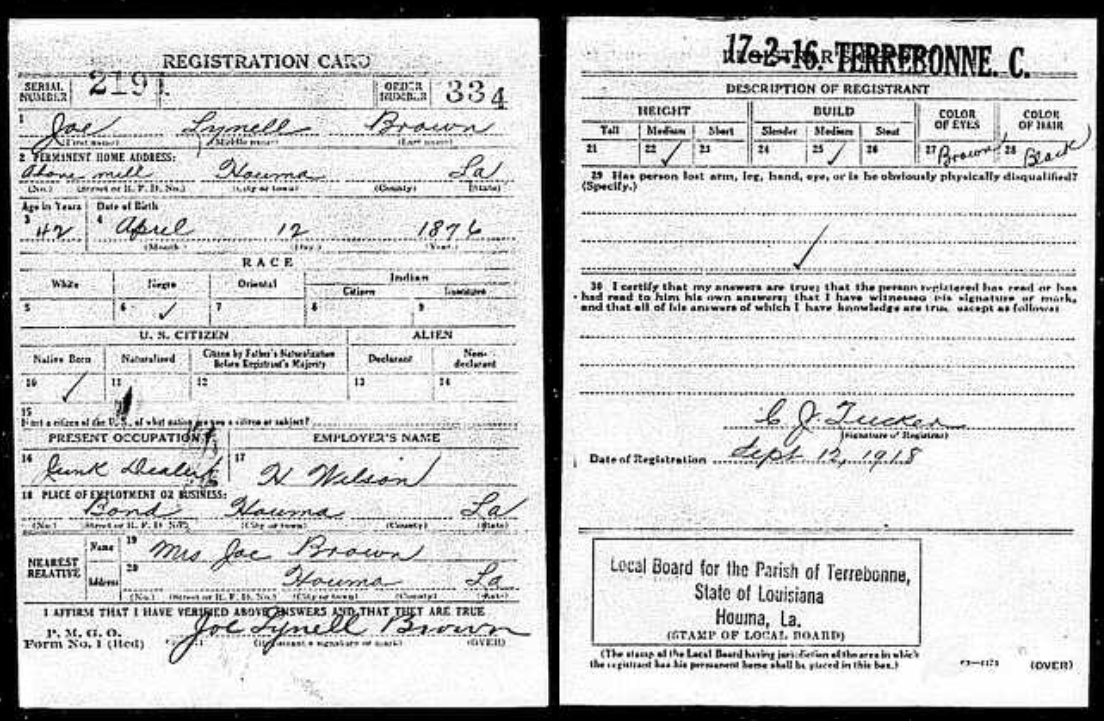 REGISTRATION CARD
SERIAL NUMBER 2191 ORDER NUMBER 334
1 Joe Lynell Brown
(First name) (Middle name) (Last name)
2 PERMANENT HOME ADDRESS:
mill Houma La
(No.) (Street or R. F. D. No.) (City or town) (County) (State)
Age in Years Date of Birth
3 42 4 April 12 1876
(Month) (Day) (Year)
RACE
White Negro Oriental Indian
Citizen Noncitizen
5 6 ✓ 7 8 9
U. S. CITIZEN ALIEN
Native Born Naturalized Citizen by Father's Naturalization Before Registrant's Majority Declarant Non-declarant
10 ✓ 11 12 13 14
15
If not a citizen of the U. S., of what nation are you a citizen or subject?
PRESENT OCCUPATION EMPLOYER'S NAME
16 Junk Dealer 17 H Wilson
18 PLACE OF EMPLOYMENT OR BUSINESS:
Bond Houma La
(No.) (Street or R. F. D. No.) (City or town) (County) (State)
NEAREST RELATIVE
Name 19 Mrs Joe Brown
Address 20 Houma La
(No.) (Street or R. F. D. No.) (City or town) (County) (State)
I AFFIRM THAT I HAVE VERIFIED ABOVE ANSWERS AND THAT THEY ARE TRUE
P. M. G. O.
Form No. 1 (Red) Joe Lynell Brown
(Registrant's signature or mark) (OVER)
17-2-16. TERREBONNE. C.
DESCRIPTION OF REGISTRANT
HEIGHT BUILD COLOR OF EYES COLOR OF HAIR
Tall Medium Short Slender Medium Stout
21 22 ✓ 23 24 25 ✓ 26 27 Brown 28 Black
29 Has person lost arm, leg, hand, eye, or is he obviously physically disqualified?
(Specify.)
✓
30 I certify that my answers are true; that the person registered has read or has
had read to him his own answers; that I have witnessed his signature or mark,
and that all of his answers of which I have knowledge are true, except as follows:
C J Tucker
(Signature of Registrar)
Date of Registration Sept 12, 1918
Local Board for the Parish of Terrebonne,
State of Louisiana
Houma, La.
(STAMP OF LOCAL BOARD)
(The stamp of the Local Board having jurisdiction of the area in which
the registrant has his permanent home shall be placed in this box.)
(OVER)